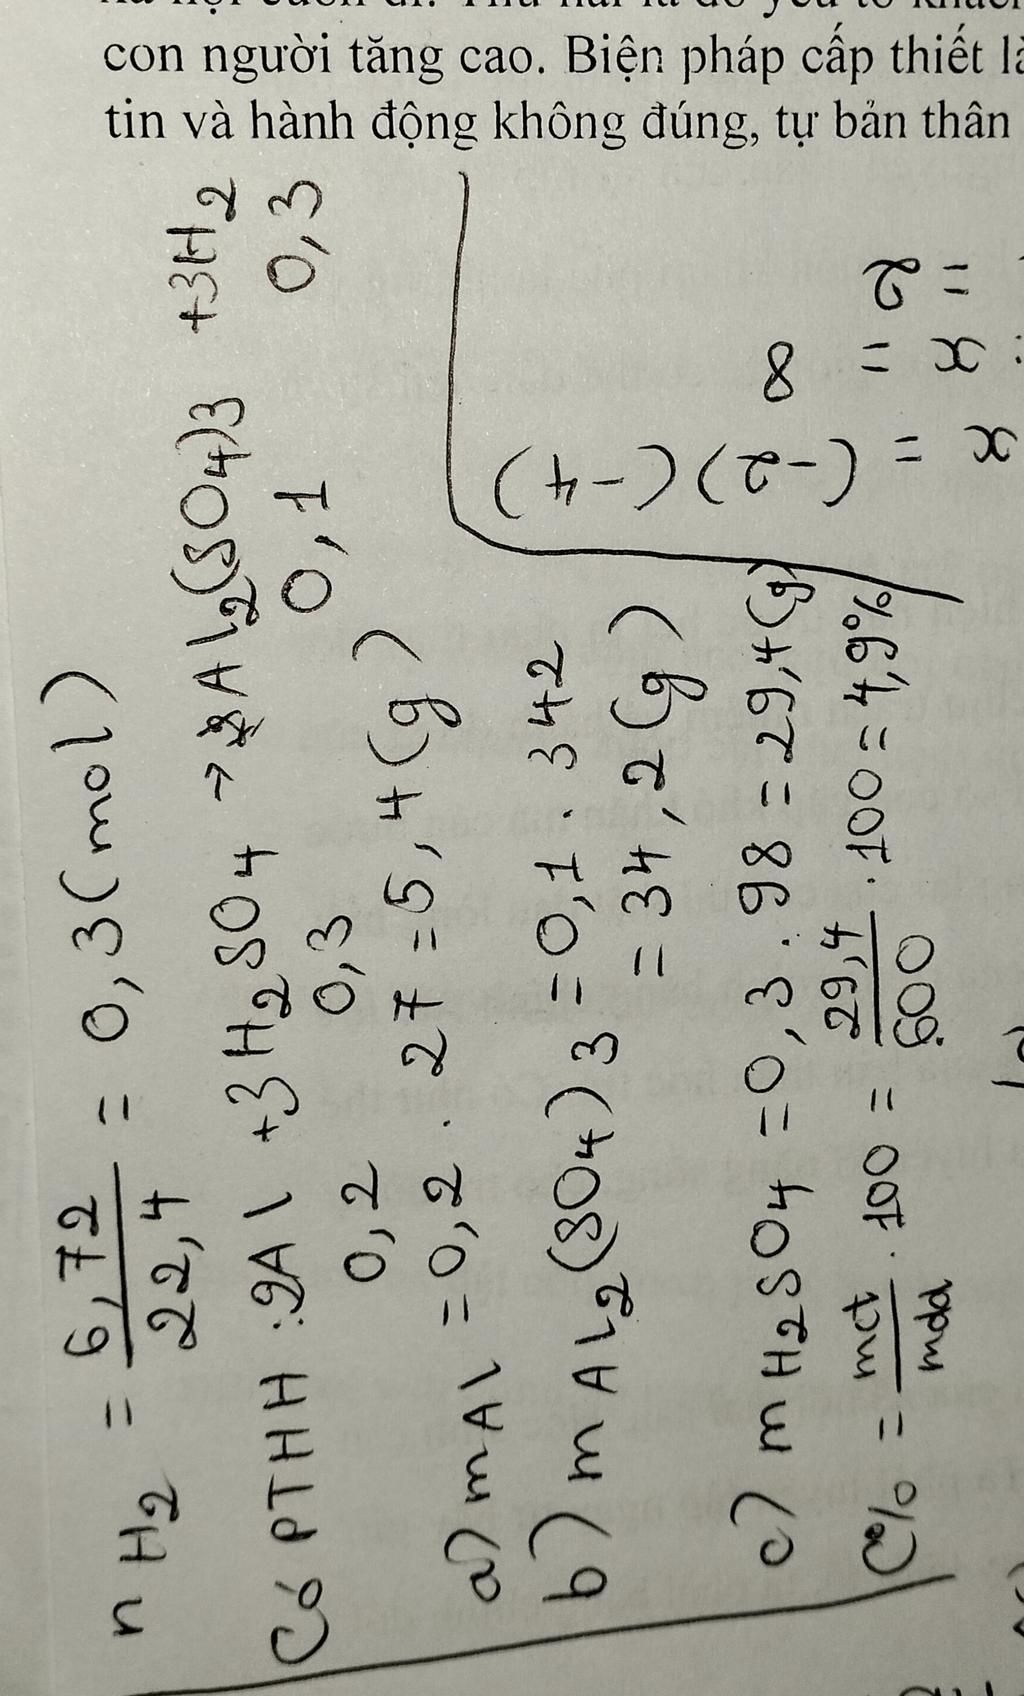 con người tăng cao. Biện pháp cấp thiết là
tin và hành động không đúng, tự bản thân
nH2 = 6,72 / 22,4 = 0,3(mol)
Có PTHH : 2Al +3H2SO4 → Al2(SO4)3 +3H2
0,2 0,3 0,1 0,3
a) mAl = 0,2 . 27 = 5,4(g)
b) mAl2(SO4)3 = 0,1 . 342
= 34,2(g)
c) mH2SO4 = 0,3 . 98 = 29,4(g)
C% = mct / mdd . 100 = 29,4 / 600 . 100 = 4,9%
(-2)(-4)
8
x = 2
x =